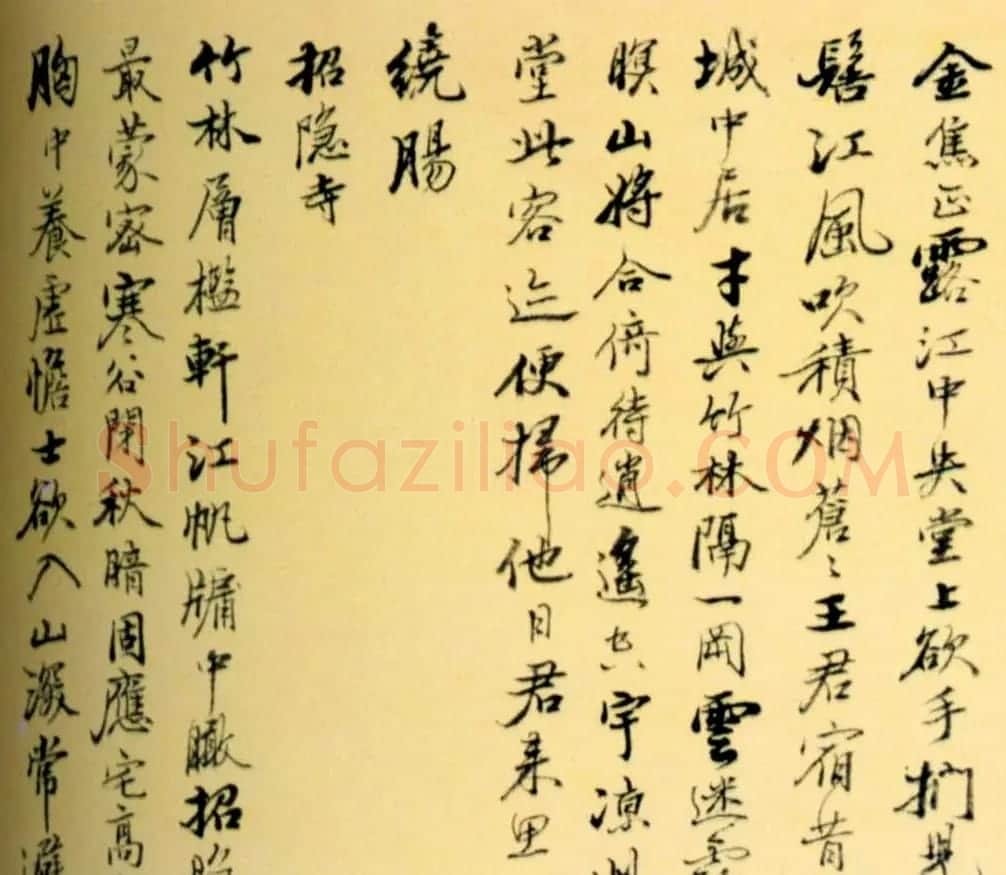 金焦正露江中央堂上欲手捫
鬟江風吹積烟蒼〻王君宿昔
城中居才與竹林隔一岡雲迷
暝山將合倚待逍遙宇凉
堂此容迄便掃他日君来里
繞腸
招隐寺
竹林層檻軒江帆牖中瞰招
最蒙密寒谷閉秋暗固應宅高
胸中養虛憺士欲入山深常避
Shufaziliao.COM